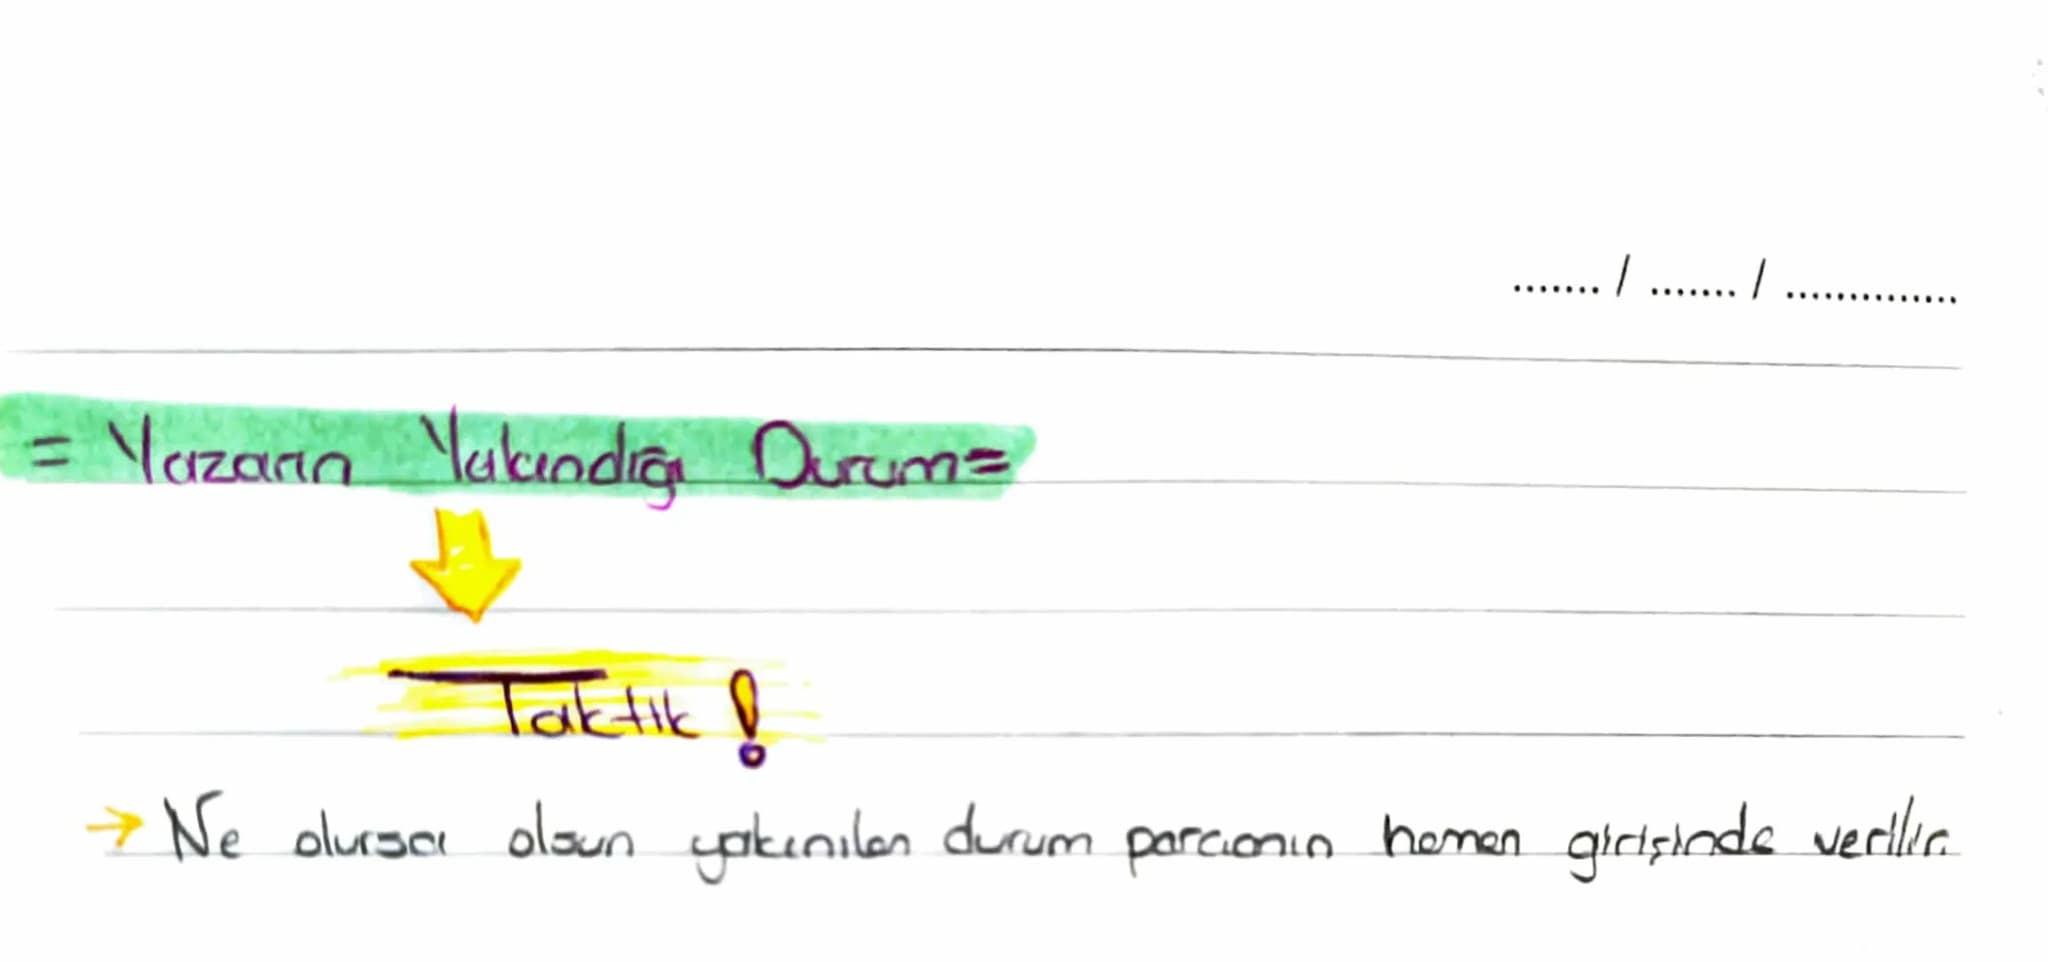 ....... / ....... / ..............
= Yazarın Yakındığı Durum=
Taktik !
→ Ne olursa olsun yakınılan durum parçanın hemen girişinde verilir.